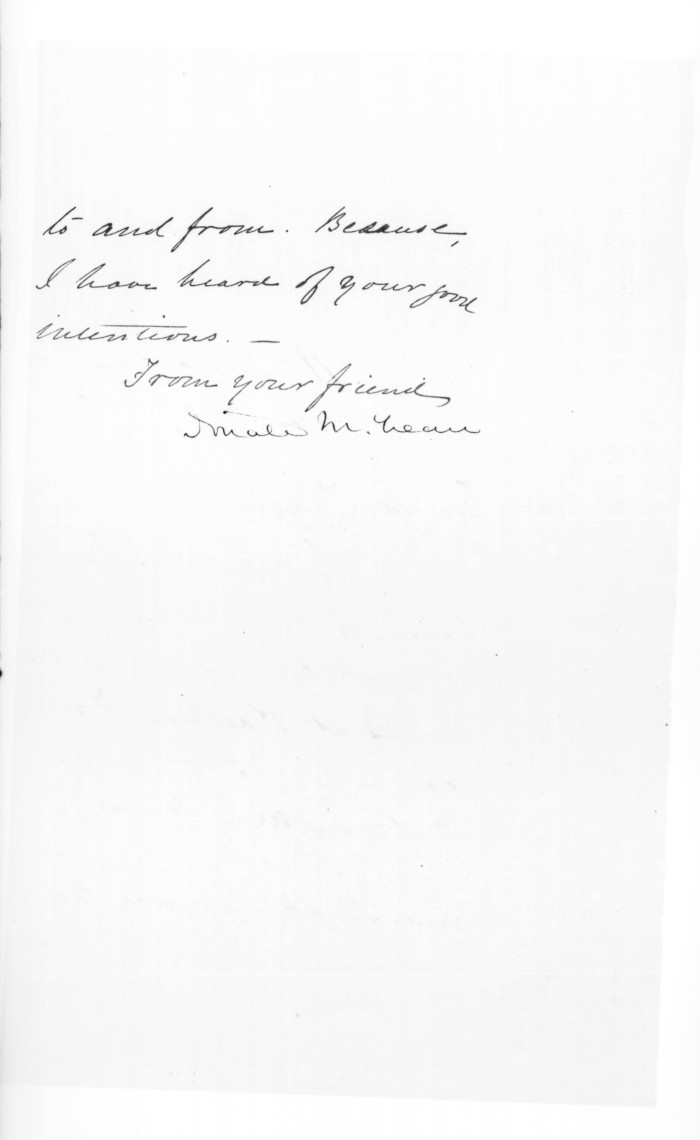 to and from. Because,
I have heard of your good
intentions. —
From your friend
Donald McLean